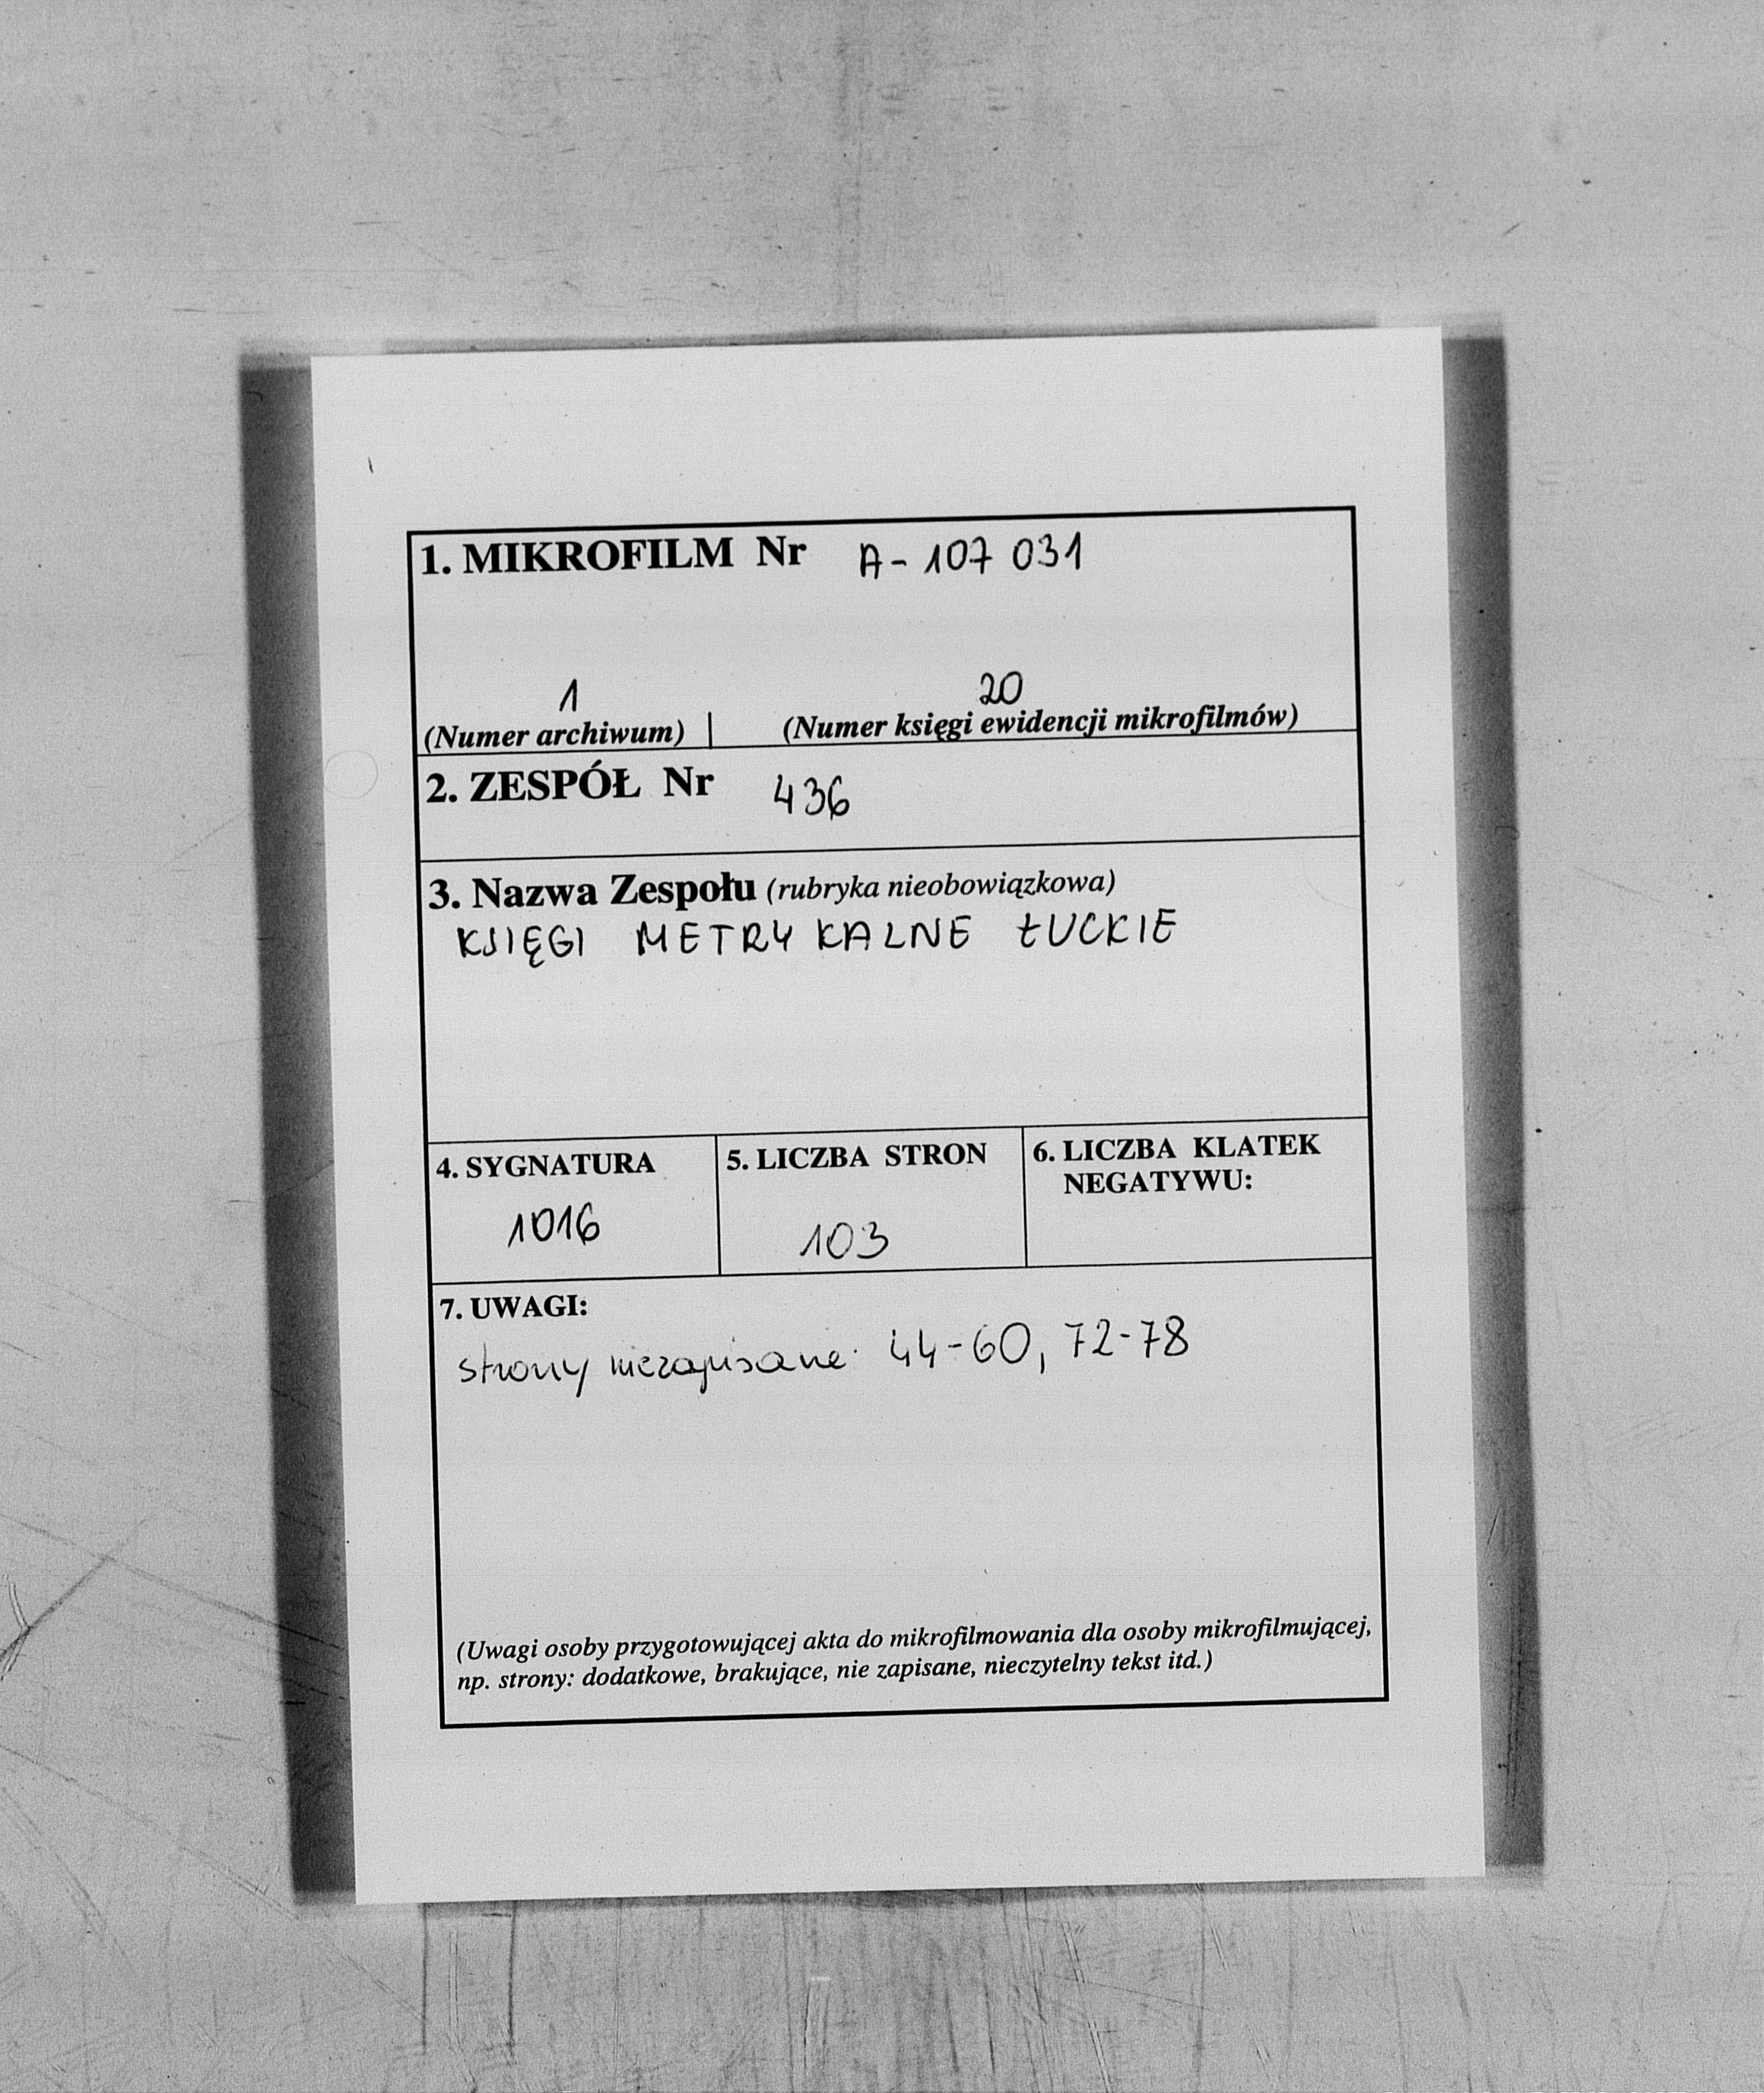 1. MIKROFILM Nr A-107 031
1 20
(Numer archiwum) | (Numer księgi ewidencji mikrofilmów)
2. ZESPÓŁ Nr 436
3. Nazwa Zespołu (rubryka nieobowiązkowa)
KSIĘGI METRYKALNE ŁUCKIE
4. SYGNATURA
1016
5. LICZBA STRON
103
6. LICZBA KLATEK
NEGATYWU:
7. UWAGI:
strony niezapisane: 44-60, 72-78
(Uwagi osoby przygotowującej akta do mikrofilmowania dla osoby mikrofilmującej,
np. strony: dodatkowe, brakujące, nie zapisane, nieczytelny tekst itd.)